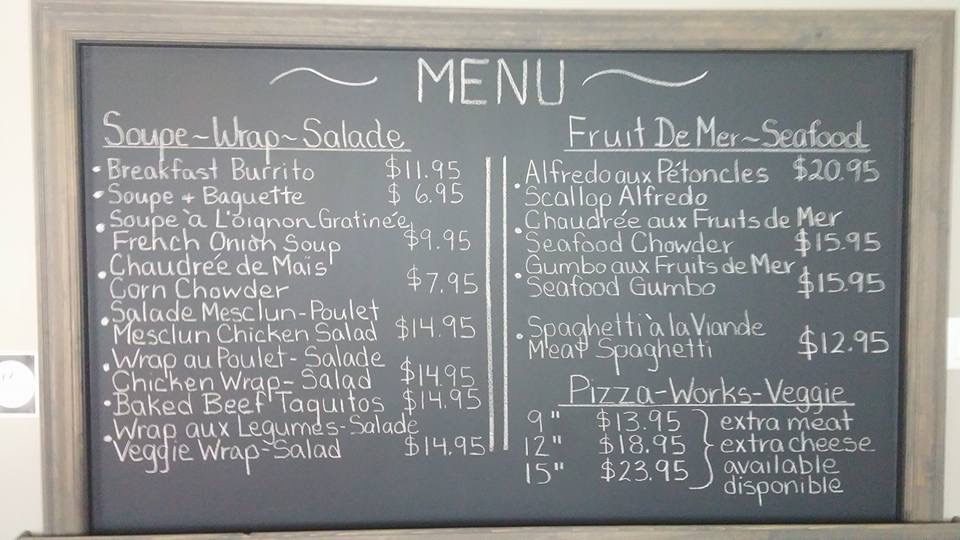 MENU
Soupe~Wrap~Salade
• Breakfast Burrito $11.95
• Soupe + Baguette $ 6.95
• Soupe à L'oignon Gratineé
French Onion Soup $9.95
• Chaudreé de Maïs
Corn Chowder $7.95
• Salade Mesclun-Poulet
Mesclun Chicken Salad $14.95
• Wrap au Poulet-Salade
Chicken Wrap-Salad $14.95
• Baked Beef Taquitos $14.95
• Wrap aux Legumes-Salade
Veggie Wrap-Salad $14.95
Fruit De Mer~Seafood
• Alfredo aux Pétoncles $20.95
Scallop Alfredo
• Chaudrée aux Fruits de Mer
Seafood Chowder $15.95
• Gumbo aux Fruits de Mer
Seafood Gumbo $15.95
• Spaghetti à la Viande
Meat Spaghetti $12.95
Pizza-Works-Veggie
9" $13.95 extra meat
12" $18.95 extra cheese
15" $23.95 available
disponible